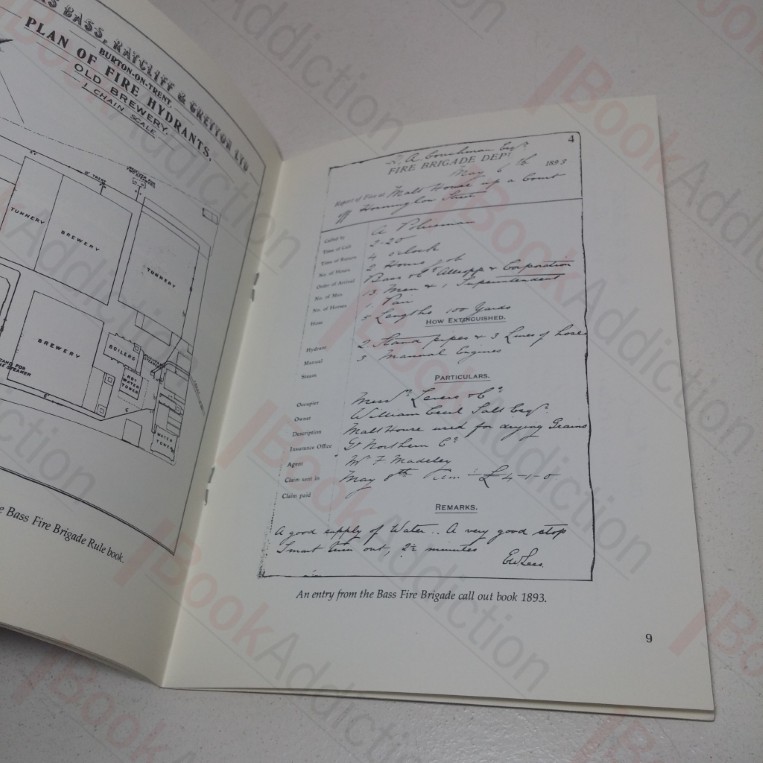 RS BASS, RATCLIFF & GRETTON LTD
BURTON-ON-TRENT.
PLAN OF FIRE HYDRANTS,
OLD BREWERY.
1 CHAIN SCALE
TUNNERY
BREWERY
TUNNERY
BREWERY
BOILERS
Bass Fire Brigade Rule book.
4
FIRE BRIGADE DEPT
May 6th 1893
Report of Fire at Malt House up a Court
off Horninglow Street
Called by A Policeman
Time of Call 2-20
Time of Return 4 o'clock
No. of Hours 2 Hours
Order of Arrival Bass Allsopp & Corporation
No. of Men 13 Men & 1 Superintendent
No. of Horses 1 Pair
Hose 5 Lengths 100 Yards
HOW EXTINGUISHED.
Hydrant 2 Stand pipes & 3 Lines of hose
Manual 3 Manual Engines
Steam
PARTICULARS.
Occupier Messrs
Owner William Cecil Salt Esqr.
Description Malt House used for drying Grains
Insurance Office Gt Northern Co.
Agent W F Madeley
Claim sent in May 8th
Claim paid
REMARKS.
A good supply of Water .. A very good stop
Smart turn out, 2½ minutes
An entry from the Bass Fire Brigade call out book 1893.
9
BookAddiction